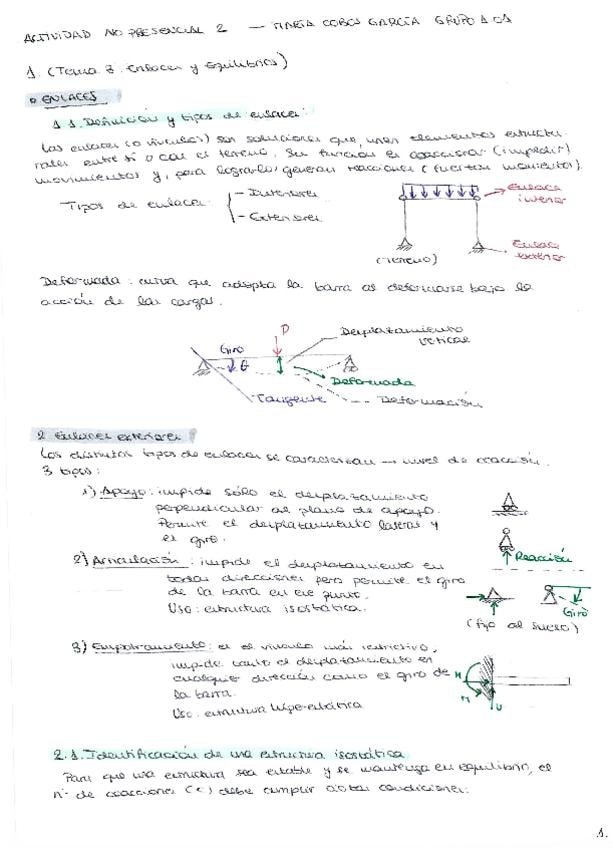 ACTIVIDAD NO PRESENCIAL 2 — MARÍA COBOS GARCÍA GRUPO 1.01
1. (Tema 3. Enlaces y Equilibrio)
ENLACES
1.1. Definición y tipos de enlace:
Los enlaces (o vínculos) son soluciones que unen elementos estructu-
rales entre sí o con el terreno. Su función es coaccionar (impedir)
movimientos y, para lograrlo, generan reacciones (fuerzas momentos).
Tipos de enlace:
- Interiores
- Exteriores
Enlace interior
(terreno)
Enlace exterior
Deformada: curva que adopta la barra al deformarse bajo la
acción de las cargas.
P
Desplazamiento vertical
Giro
θ
Deformada
Tangente
--- Deformación
2 Enlaces exteriores
Los distintos tipos de enlaces se caracterizan → nivel de coacción.
3 tipos:
1) Apoyo: impide sólo el desplazamiento
perpendicular al plano de apoyo.
Permite el desplazamiento lateral y
el giro.
Reacción
2) Articulación: impide el desplazamiento en
todas direcciones pero permite el giro
de la barra en ese punto.
Uso: estructura isostática.
Giro
(fijo al suelo)
3) Empotramiento: es el vínculo más restrictivo,
impide tanto el desplazamiento en
cualquier dirección como el giro de
la barra.
Uso: estructura hiperestática
H
M
V
2.1. Identificación de una estructura isostática
Para que una estructura sea estable y se mantenga en equilibrio, el
nº de coacciones (c) debe cumplir condiciones:
1.